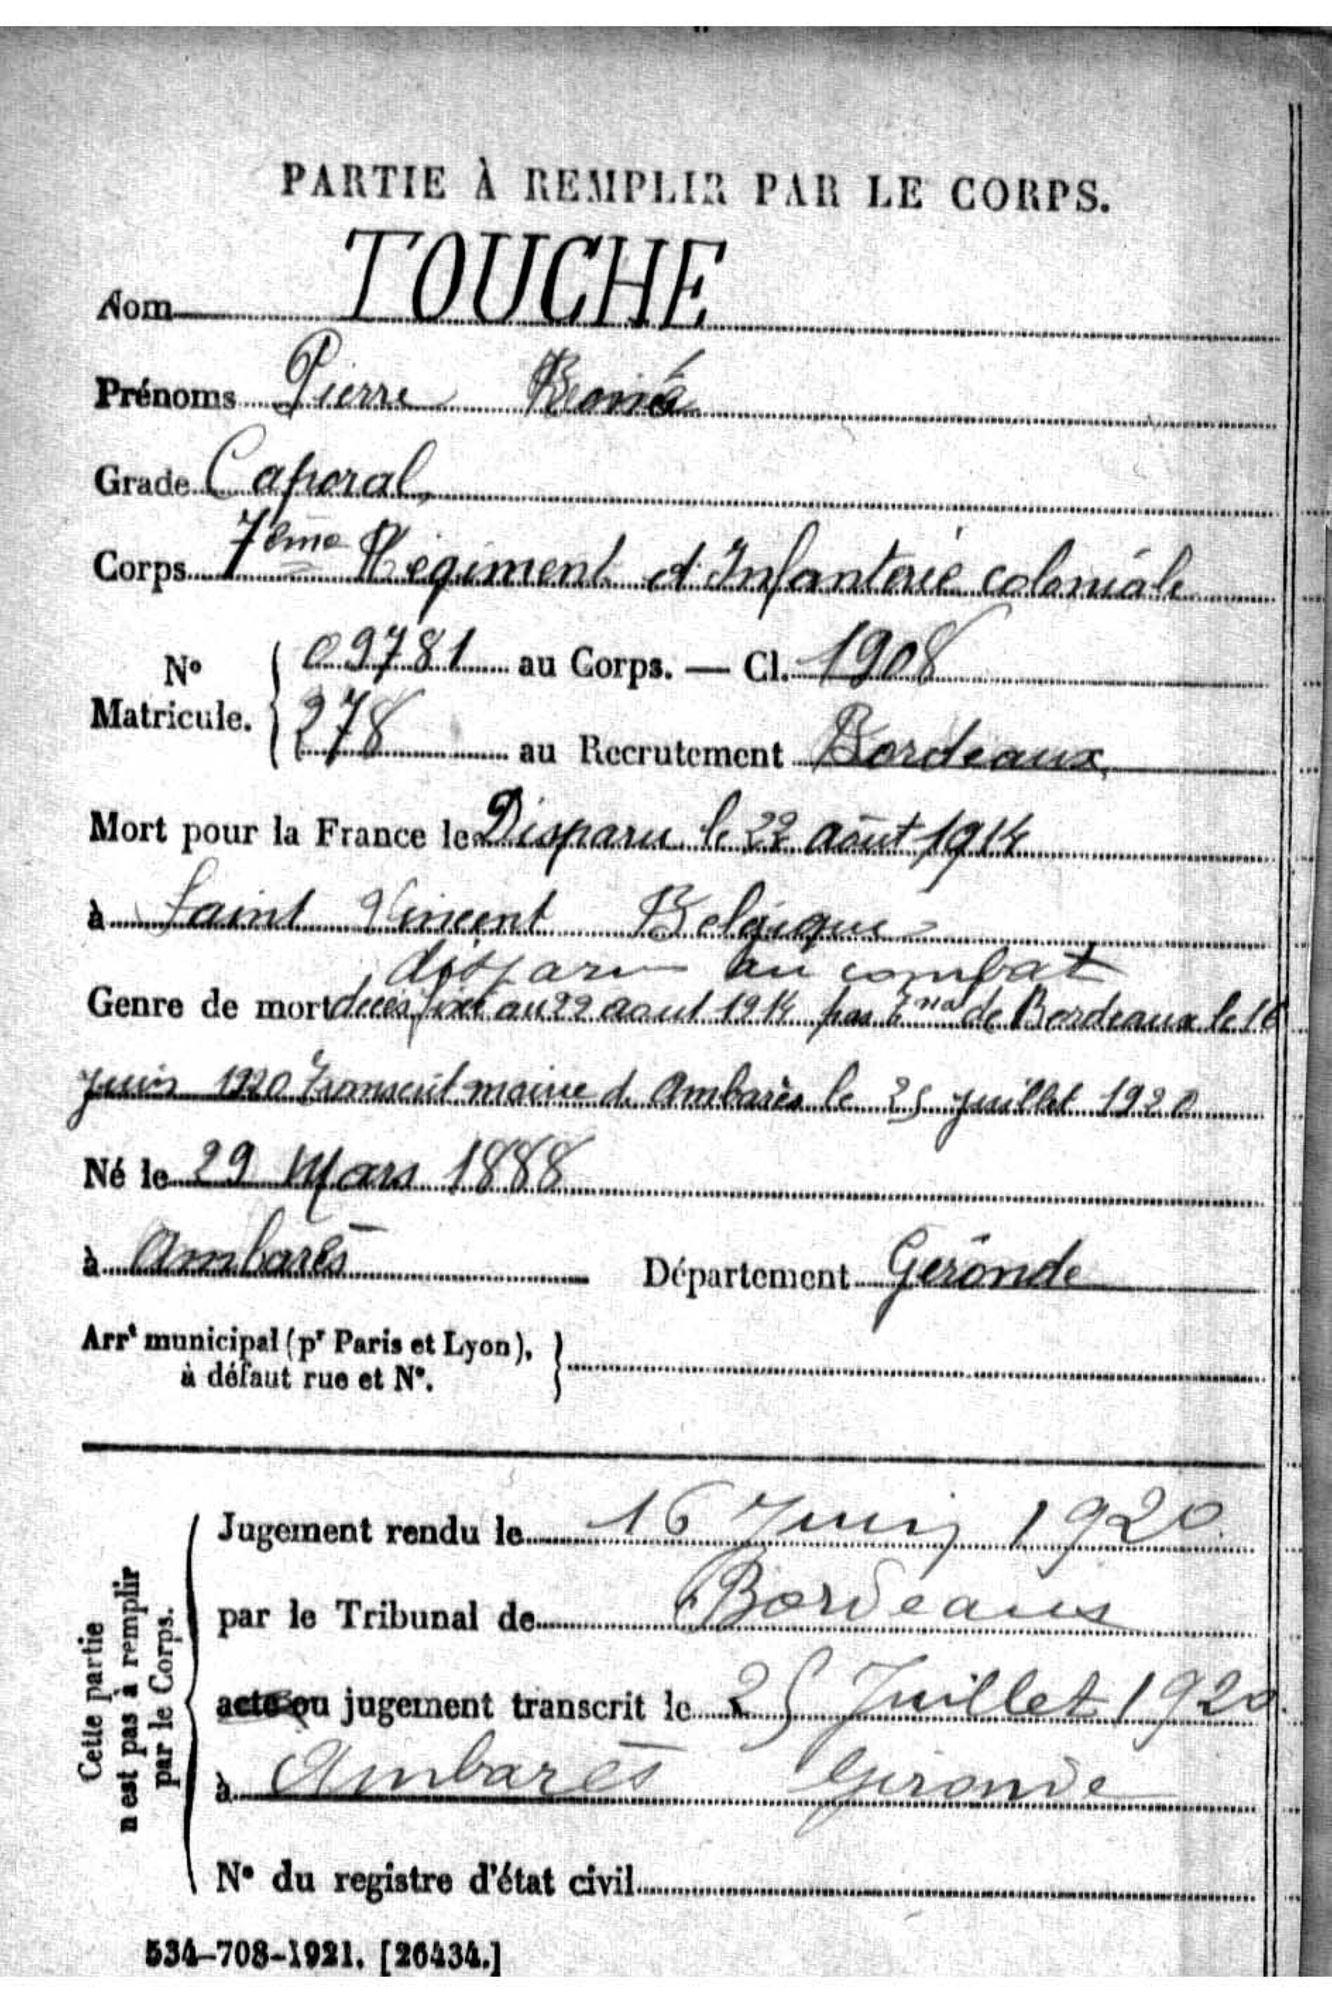 PARTIE À REMPLIR PAR LE CORPS.
Nom TOUCHE
Prénoms Pierre
Grade Caporal,
Corps 7ème Régiment d'Infanterie coloniale
N° Matricule. { 09781 au Corps. — Cl. 1908
278 au Recrutement Bordeaux,
Mort pour la France le Disparu le 22 août 1914
à Saint Vincent Belgique
disparu au combat
Genre de mort décès fixé au 22 aout 1914 par de Bordeaux le 16
juin 1920 Transcrit mairie d. Ambarès le 25 juillet 1920
Né le 29 Mars 1888
à Ambarès Département Gironde
Arrt municipal (pr Paris et Lyon), }
à défaut rue et N°.
Cette partie
n'est pas à remplir
par le Corps.
Jugement rendu le 16 Juin 1920
par le Tribunal de Bordeaux
acte ou jugement transcrit le 25 Juillet 1920.
à Ambarès Gironde
N° du registre d'état civil
534-708-1921. [26434.]